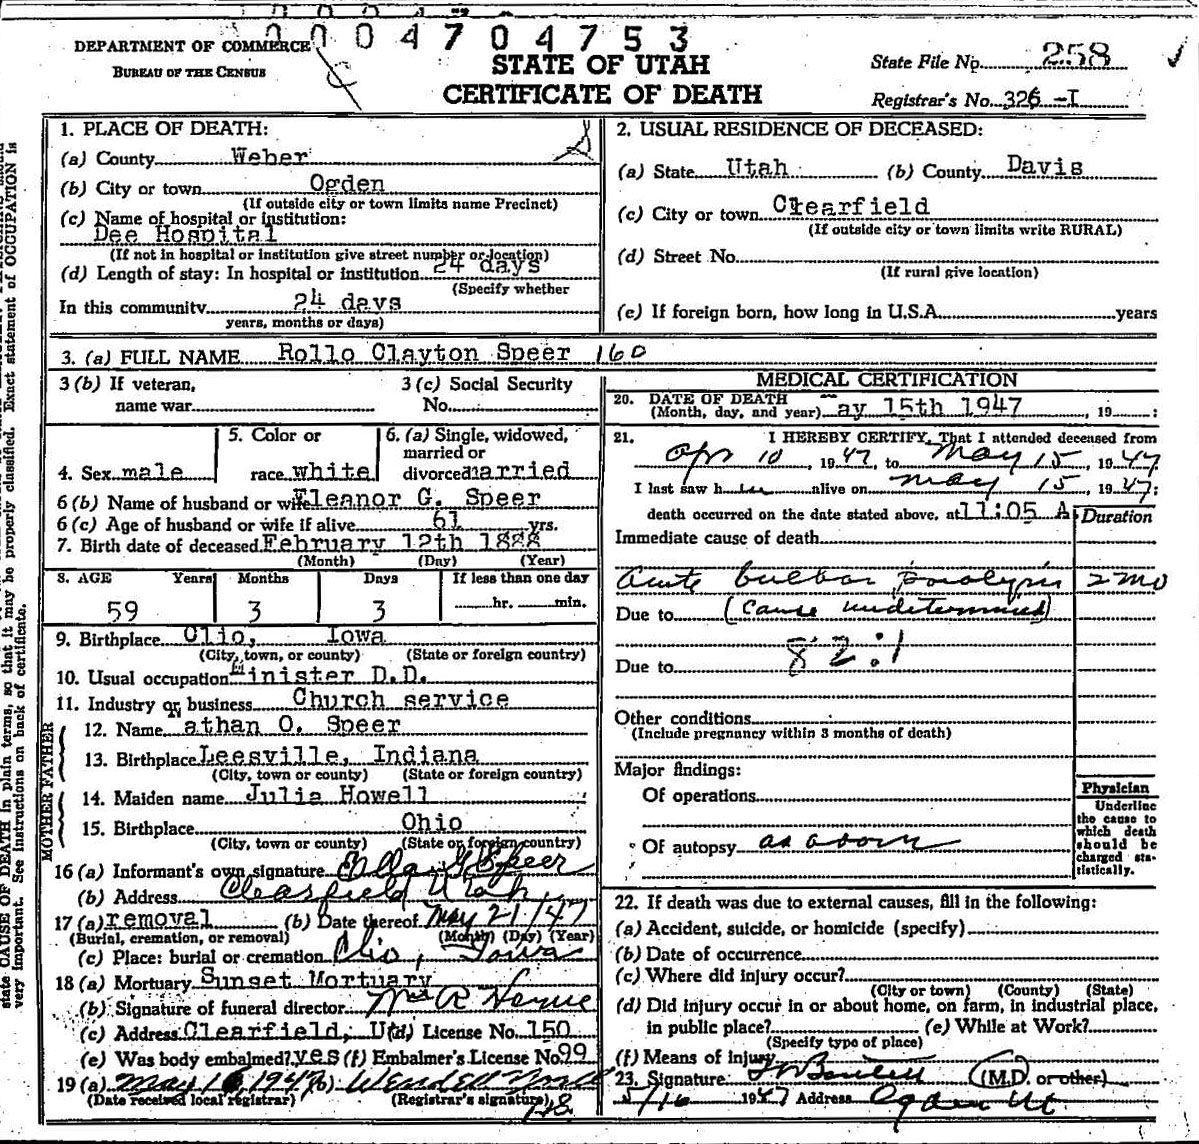 0004704753
DEPARTMENT OF COMMERCE
BUREAU OF THE CENSUS
STATE OF UTAH
CERTIFICATE OF DEATH
State File No. 258
Registrar's No. 326-I
1. PLACE OF DEATH:
(a) County Weber
(b) City or town Ogden
(If outside city or town limits name Precinct)
(c) Name of hospital or institution:
Dee Hospital
(If not in hospital or institution give street number or location)
(d) Length of stay: In hospital or institution 24 days
(Specify whether
In this community 24 days
years, months or days)
2. USUAL RESIDENCE OF DECEASED:
(a) State Utah (b) County Davis
(c) City or town Clearfield
(If outside city or town limits write RURAL)
(d) Street No.
(If rural give location)
(e) If foreign born, how long in U.S.A. years
3. (a) FULL NAME Rollo Clayton Speer 160
3 (b) If veteran, name war
3 (c) Social Security No.
4. Sex male
5. Color or race white
6. (a) Single, widowed, married or divorced married
6 (b) Name of husband or wife Eleanor G. Speer
6 (c) Age of husband or wife if alive 61 yrs.
7. Birth date of deceased February 12th 1888
(Month) (Day) (Year)
8. AGE Years Months Days If less than one day
59 3 3 hr. min.
9. Birthplace Clio, Iowa
(City, town, or county) (State or foreign country)
10. Usual occupation Minister D.D.
11. Industry or business Church service
FATHER
12. Name Nathan O. Speer
13. Birthplace Leesville, Indiana
(City, town or county) (State or foreign country)
MOTHER
14. Maiden name Julia Howell
15. Birthplace Ohio
(City, town or county) (State or foreign country)
16 (a) Informant's own signature G Speer
(b) Address Clearfield Utah
17 (a) removal (b) Date thereof May 21/47
(Burial, cremation, or removal) (Month) (Day) (Year)
(c) Place: burial or cremation Clio, Iowa
18 (a) Mortuary Sunset Mortuary
(b) Signature of funeral director Mrs R
(c) Address Clearfield, U (d) License No. 150
(e) Was body embalmed? yes (f) Embalmer's License No. 99
19 (a) May 16 1947 (b) Wendell
(Date received local registrar) (Registrar's signature)
MEDICAL CERTIFICATION
20. DATE OF DEATH
(Month, day, and year) May 15th 1947, 19 :
21. I HEREBY CERTIFY, That I attended deceased from
Apr 10, 1947, to May 15, 1947
I last saw him alive on May 15, 1947;
death occurred on the date stated above, at 11:05 A
Duration
Immediate cause of death
Acute bulbar paralysis 2 mo
Due to (Cause undetermined)
82:1
Due to
Other conditions
(Include pregnancy within 3 months of death)
Major findings:
Of operations
Of autopsy as above
Physician
Underline
the cause to
which death
should be
charged sta-
tistically.
22. If death was due to external causes, fill in the following:
(a) Accident, suicide, or homicide (specify)
(b) Date of occurrence
(c) Where did injury occur?
(City or town) (County) (State)
(d) Did injury occur in or about home, on farm, in industrial place,
in public place? (e) While at Work?
(Specify type of place)
(f) Means of injury
23. Signature (M.D. or other)
5/16 1947 Address Ogden Ut
state CAUSE OF DEATH in plain terms, so that it may be properly classified. Exact statement of OCCUPATION is
very important. See instructions on back of certificate.